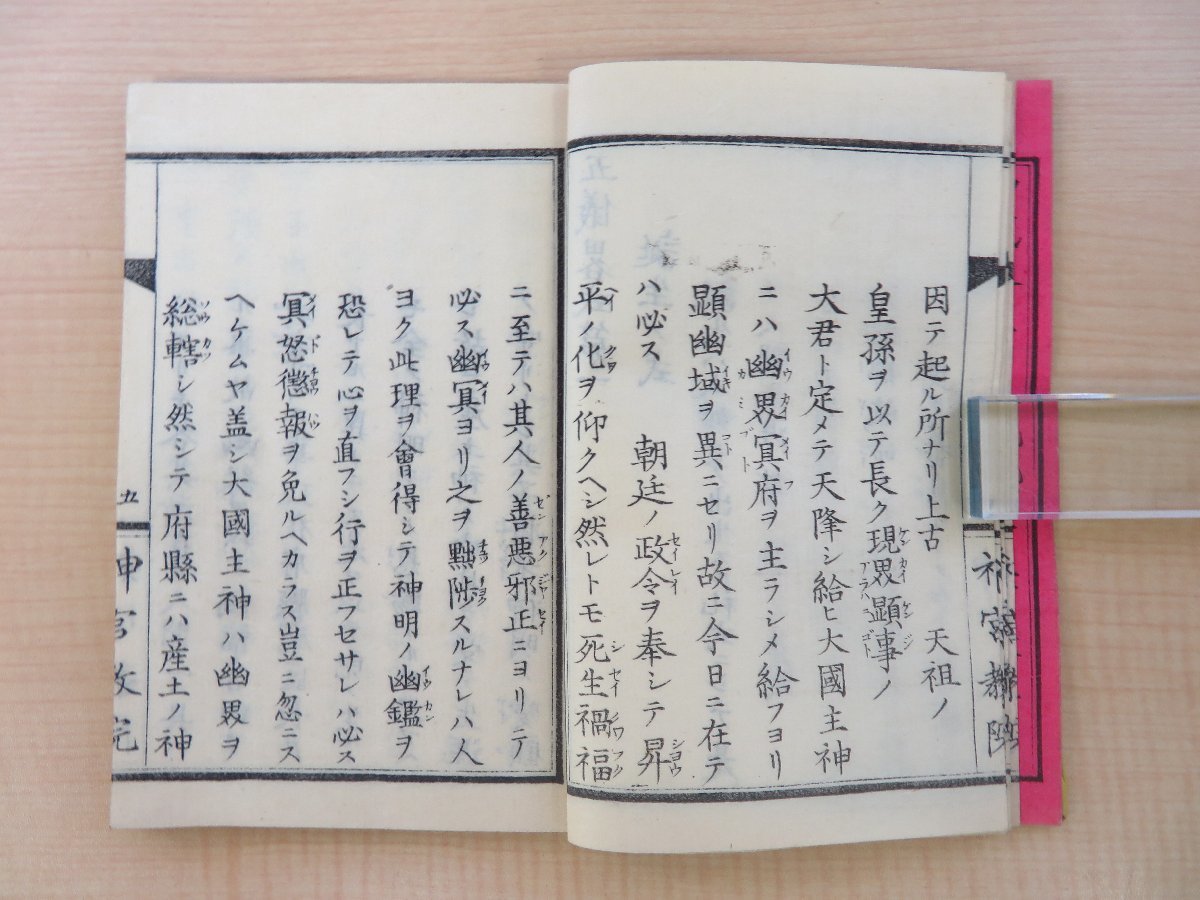 因テ起ル所ナリ上古　天祖ノ
皇孫ヲ以テ長ク現界顕事ノ
大君ト定メテ天降シ給ヒ大國主神
ニハ幽界冥府ヲ主ラシメ給フヨリ
顕幽域ヲ異ニセリ故ニ今日ニ在テ
ハ必ス　朝廷ノ政令ヲ奉シテ昇
平ノ化ヲ仰クヘシ然レトモ死生禍福
ニ至テハ其人ノ善悪邪正ニヨリテ
必ス幽冥ヨリ之ヲ黜陟スルナレハ人
ヨク此理ヲ會得シテ神明ノ幽鑑ヲ
恐レテ心ヲ直フシ行ヲ正フセサレハ必ス
冥怒懲報ヲ免ルヘカラス豈ニ忽ニス
ヘケムヤ盖シ大國主神ハ幽界ヲ
総轄シ然シテ府縣ニハ産土ノ神
五
神宮教院